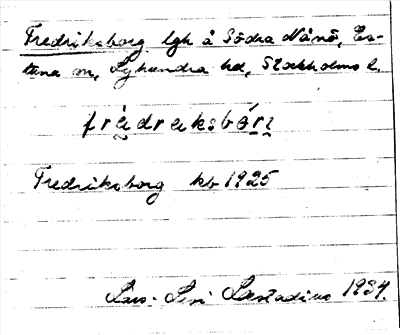 Fredriksborg lgh å Södra Nånö, Es-
tuna sn, Lyhundra hd, Stockholms l.
frèdrᴀksbórj
Fredriksborg kb 1925
Lars-Levi Læstadius 1934.